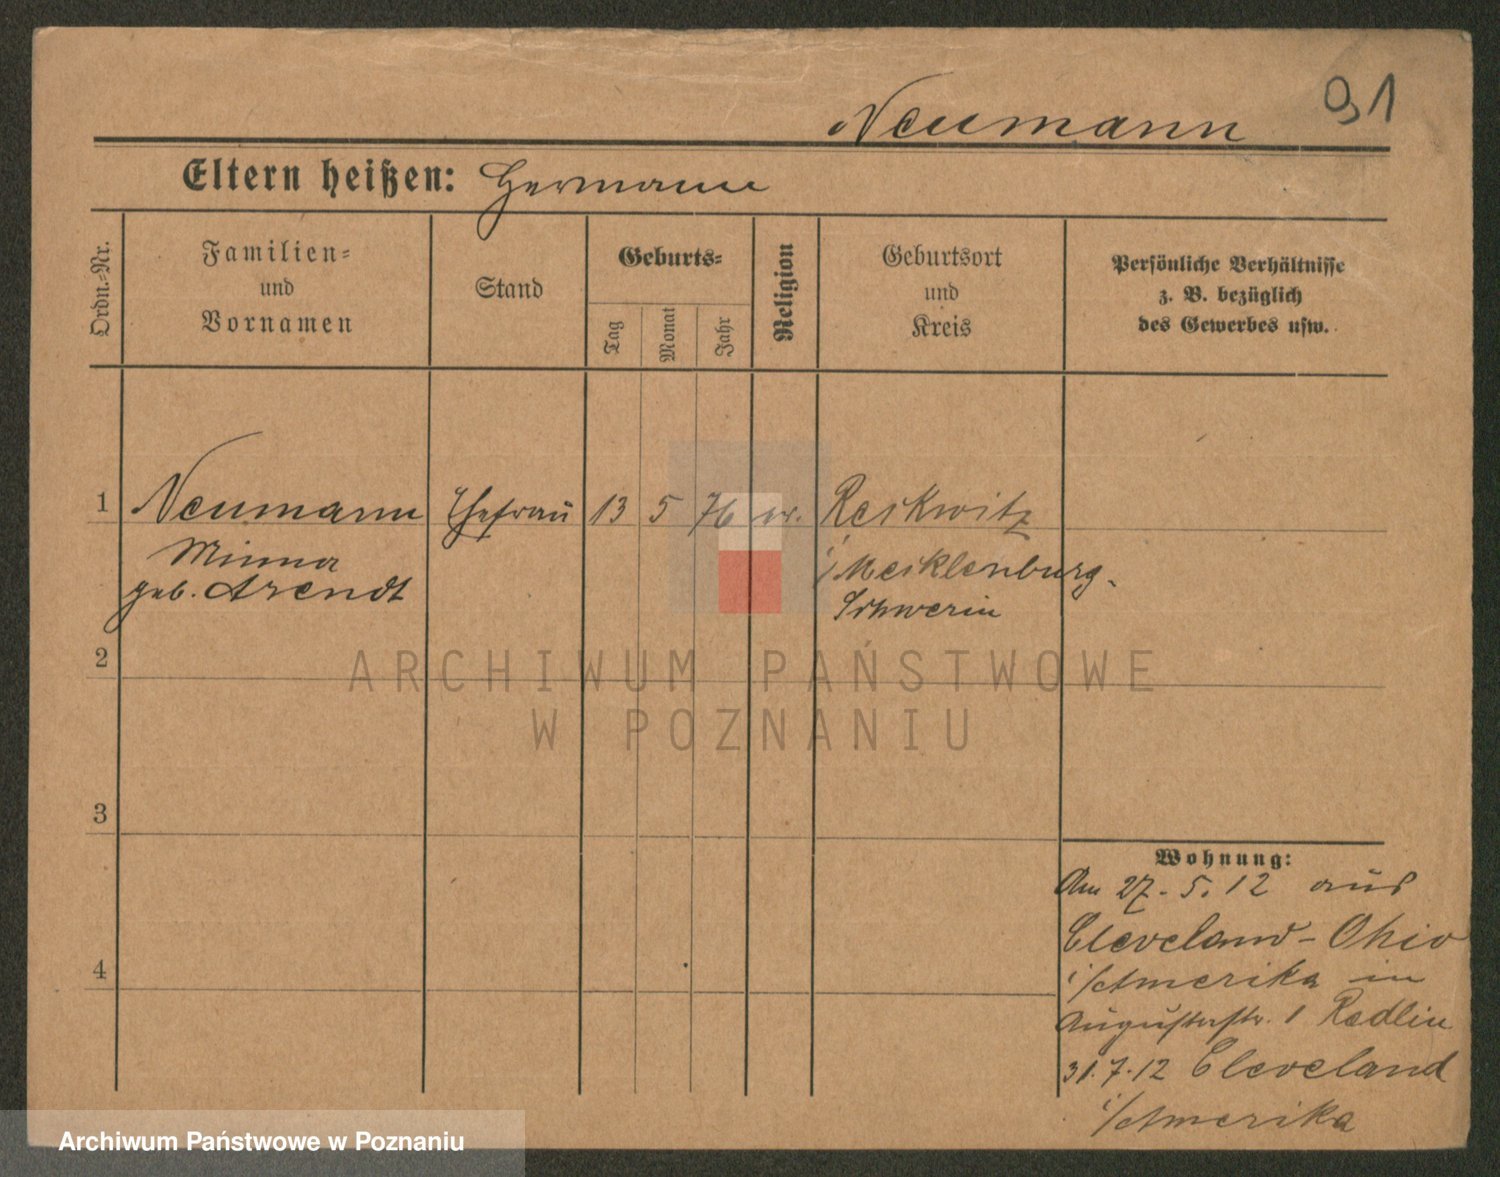 91
Neumann
Eltern heißen: Hermann
Ordn.-Nr.
Familien-
und
Vornamen
Stand
Geburts-
Tag
Monat
Jahr
Religion
Geburtsort
und
Kreis
Persönliche Verhältnisse
z. B. bezüglich
des Gewerbes usw.
1 Neumann Ehefrau 13 5 76 ev. Reskwitz
Minna
i/Mecklenburg-
geb. Arendt
Schwerin
2
ARCHIWUM PAŃSTWOWE
W POZNANIU
3
Wohnung:
Am 27.5.12 aus
Cleveland-Ohio
4
i/Amerika in
Augustastr. 1 Radlin
31.7.12 Cleveland
i/Amerika
Archiwum Państwowe w Poznaniu